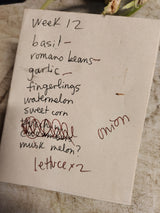 week 12
basil-
romano beans-
garlic-
fingerlings
watermelon
sweet corn
musk melon?
lettuce x 2
onion